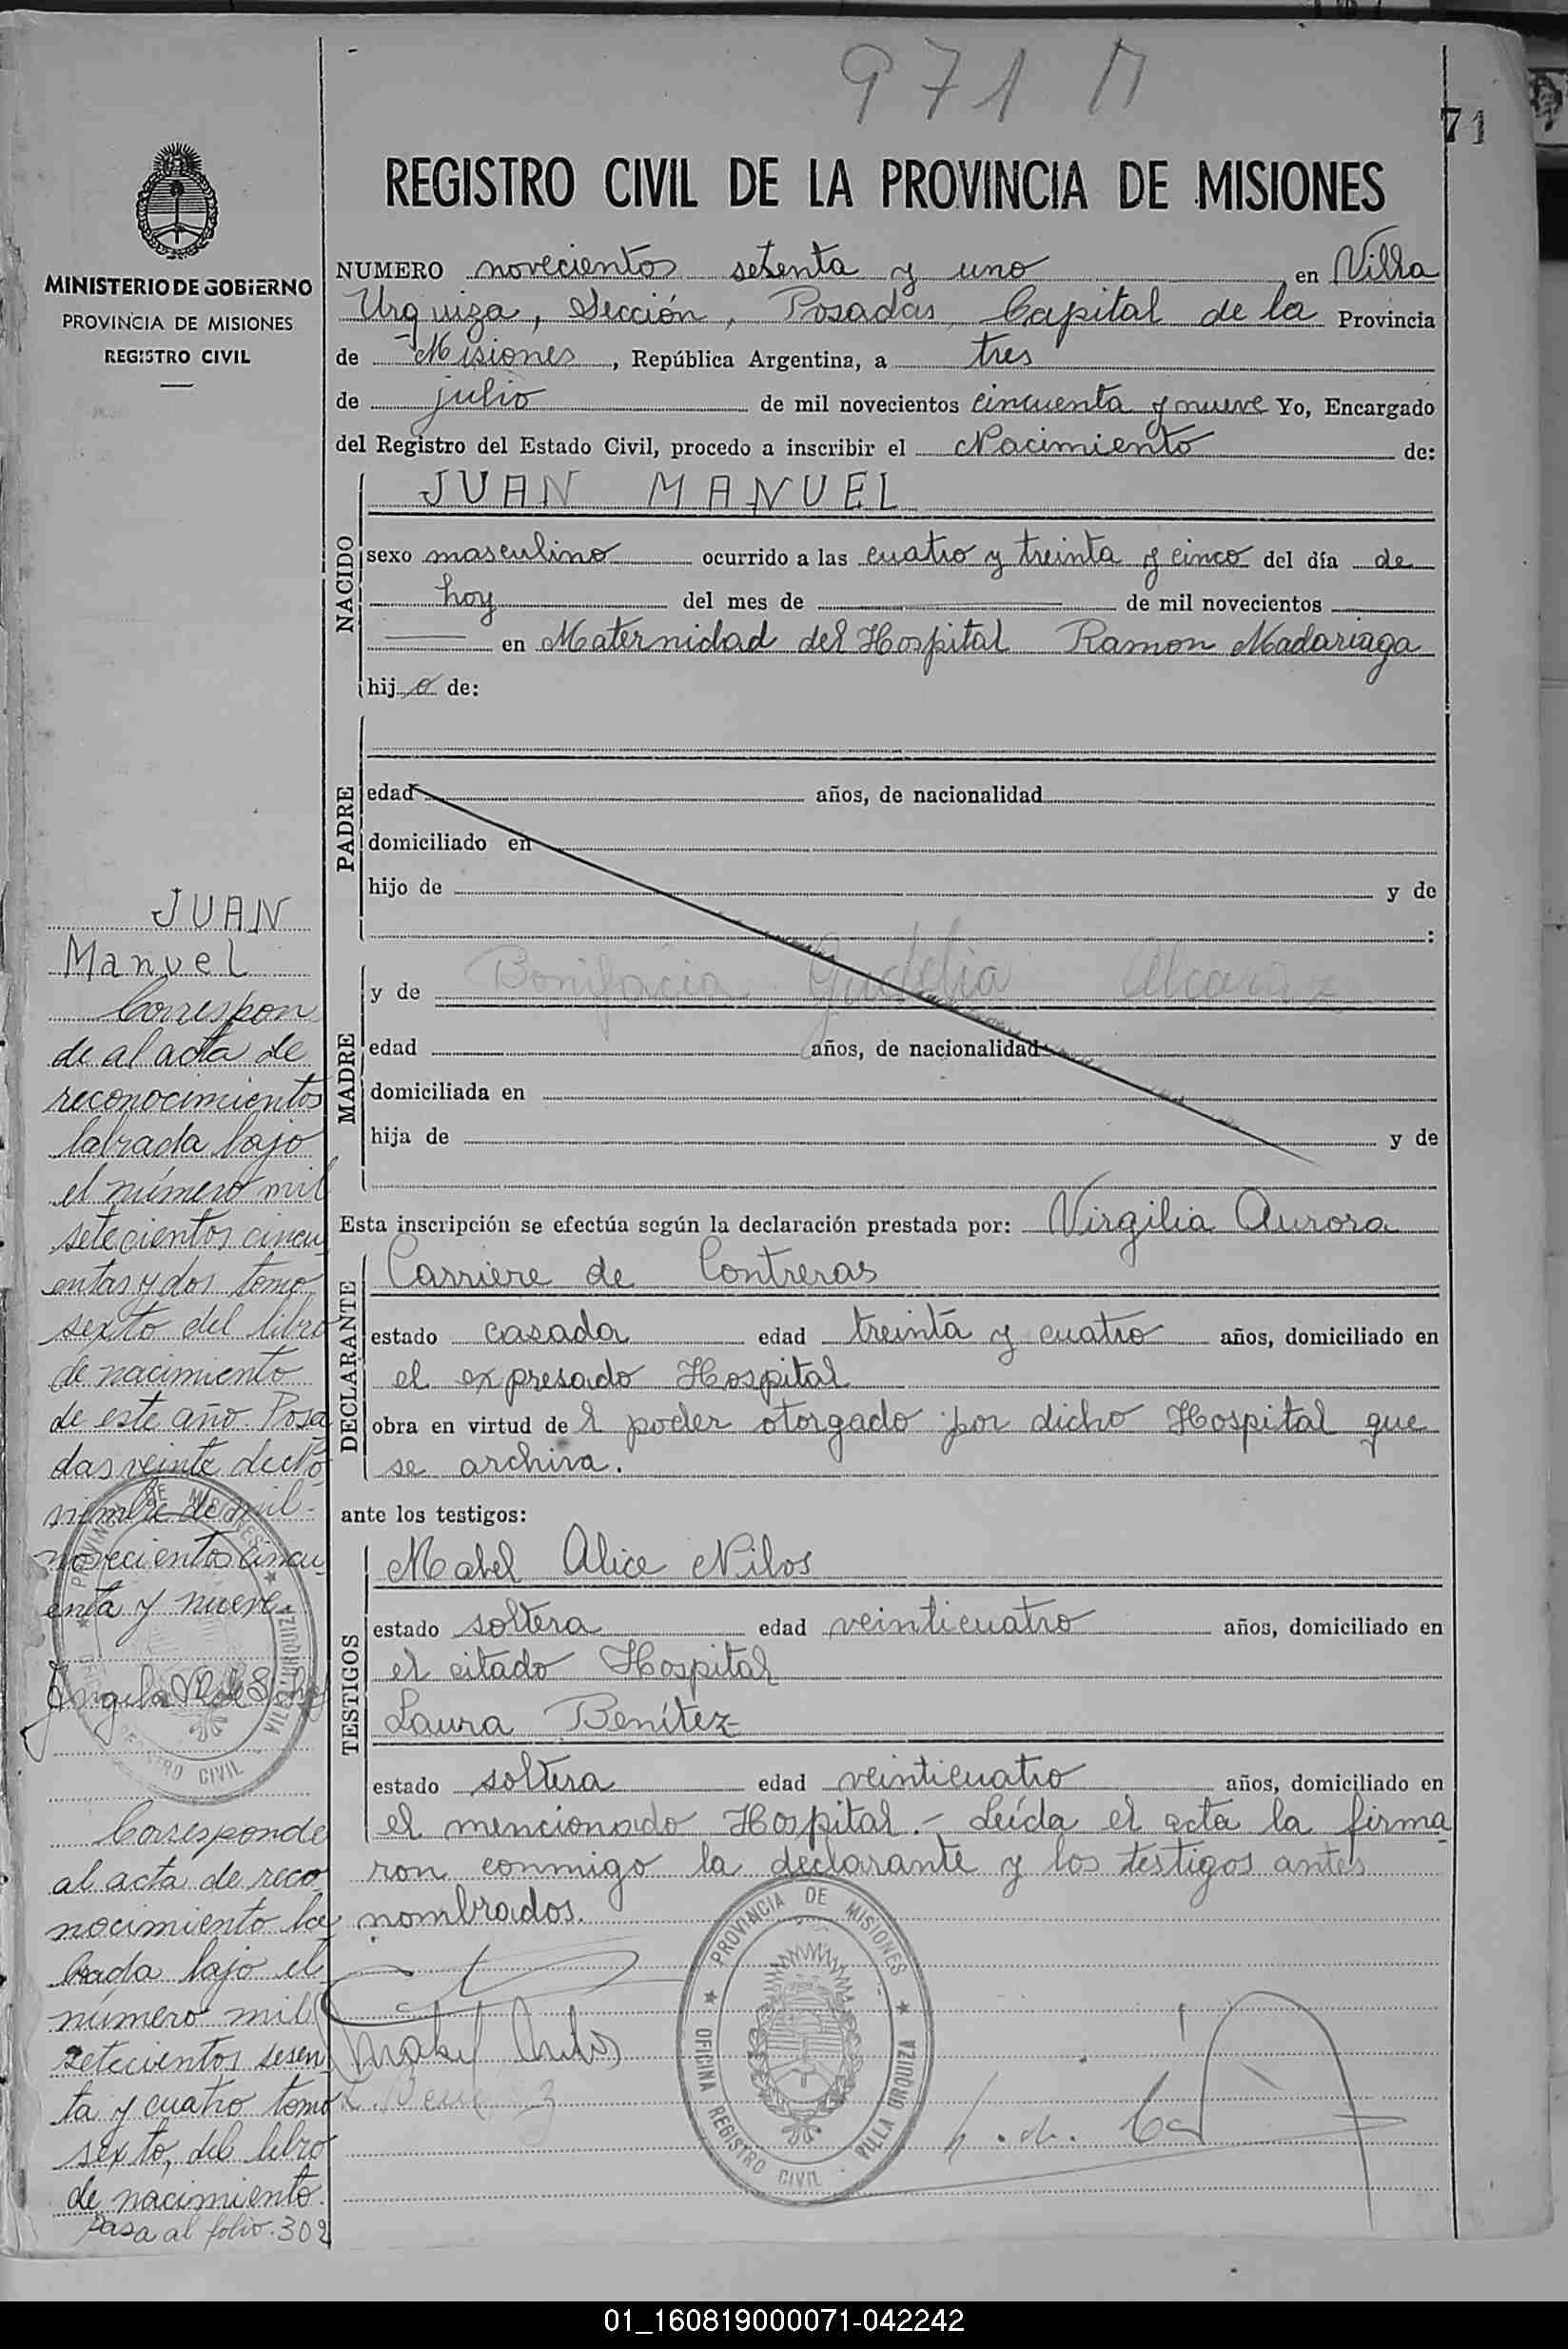 971 M
71
REGISTRO CIVIL DE LA PROVINCIA DE MISIONES
MINISTERIO DE GOBIERNO
PROVINCIA DE MISIONES
REGISTRO CIVIL
NUMERO novecientos setenta y uno en Villa
Urquiza, Sección, Posadas Capital de la Provincia
de Misiones, República Argentina, a tres
de julio de mil novecientos cincuenta y nueve Yo, Encargado
del Registro del Estado Civil, procedo a inscribir el Nacimiento de:
NACIDO
JUAN MANUEL
sexo masculino ocurrido a las cuatro y treinta y cinco del día de
hoy del mes de de mil novecientos
en Maternidad del Hospital Ramon Madariaga
hijo de:
PADRE
edad años, de nacionalidad
domiciliado en
hijo de y de
:
MADRE
y de Bonifacia Gudelia Alcaraz
edad años, de nacionalidad
domiciliada en
hija de y de
Esta inscripción se efectúa según la declaración prestada por: Virgilia Aurora
DECLARANTE
Carriere de Contreras
estado casada edad treinta y cuatro años, domiciliado en
el expresado Hospital
obra en virtud de l poder otorgado por dicho Hospital que
se archiva.
ante los testigos:
TESTIGOS
Mabel Alice Nilos
estado soltera edad veinticuatro años, domiciliado en
el citado Hospital
Laura Benítez
estado soltera edad veinticuatro años, domiciliado en
el mencionado Hospital.- Leída el acta la firma
ron conmigo la declarante y los testigos antes
nombrados.
L. Benitez
PROVINCIA DE MISIONES
OFICINA REGISTRO CIVIL - VILLA URQUIZA
JUAN
Manuel
Correspon
de al acta de
reconocimientos
labrada bajo
el número mil
setecientos cincu
entas y dos tomo
sexto del libro
de nacimiento
de este año. Posa
das veinte de
siembre de mil
novecientos cincu
enta y nueve.
PROVINCIA DE MISIONES
REGISTRO CIVIL
VILLA URQUIZA
Corresponde
al acta de reco
nocimiento la
brada bajo el
número mil
setecientos sesen
ta y cuatro tomo
sexto, del libro
de nacimiento.
Pasa al folio. 302
01_160819000071-042242